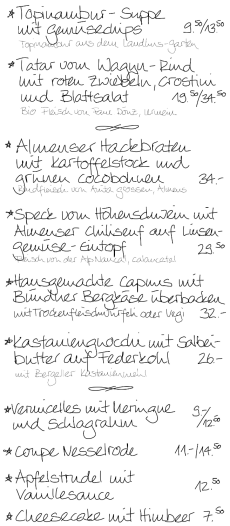 * Topinambur - Suppe
mit Gemüsechips 9.50/13.50
Topinambur aus dem Landhus-Garten
* Tatar vom Wagyu - Rind
mit roten Zwiebeln, Crostini
und Blattsalat 19.50/34.50
Bio Fleisch von
* Almenser Hackbraten
mit Kartoffelstock und
grünen Cocobohnen 34.-
Rindfleisch von Anita Grossen, Almens
* Speck vom Höhenschwein mit
Almenser Chilisenf auf Linsen-
gemüse - Eintopf 29.50
Fleisch von der Alp
* Hausgemachte Capuns mit
Bündner Bergkäse überbacken
mit Trockenfleischwürfeln oder Vegi 32.-
* Kastaniengnocchi mit Salbei-
butter auf Federkohl 26.-
mit Bergeller Kastanienmehl
* Vermicelles mit Meringue
und Schlagrahm 9.-/12.50
* Coupe Nesselrode 11.-/14.50
* Apfelstrudel mit
Vanillesauce 12.50
* Cheesecake mit Himbeer 7.50